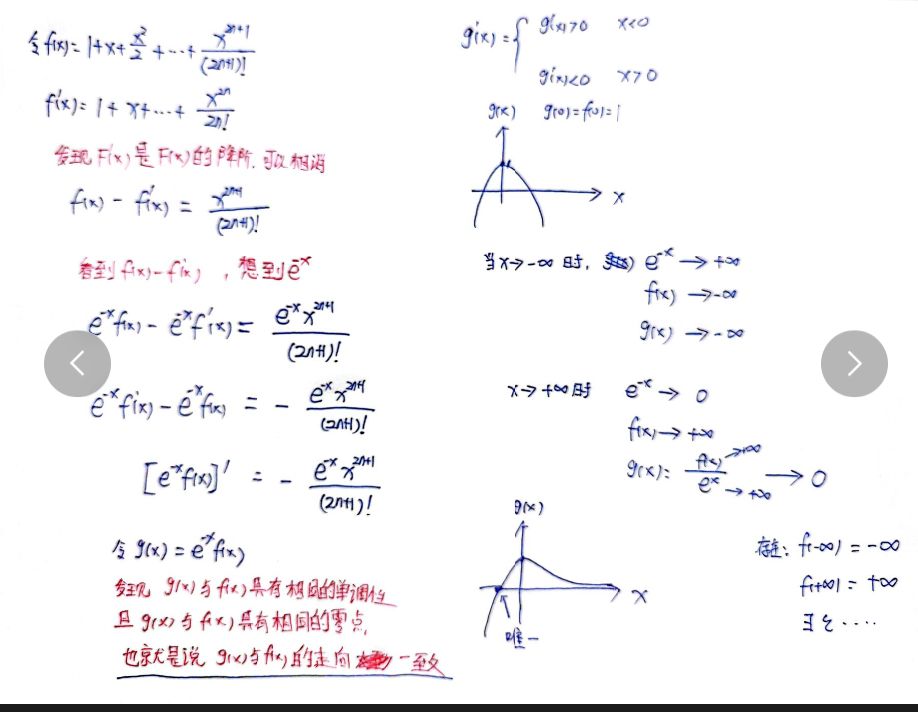 令 f(x)=1+x+x²/2+···+x^(2n+1)/(2n+1)!
f'(x)=1+x+···+x^(2n)/2n!
发现 F'(x)是F(x)的降阶,可以相消
f(x)-f'(x)=x^(2n+1)/(2n+1)!
看到 f(x)-f'(x),想到e^-x
e^-x f(x)-e^-x f'(x)=e^-x x^(2n+1)/(2n+1)!
e^-x f'(x)-e^-x f(x)=-e^-x x^(2n+1)/(2n+1)!
[e^-x f(x)]'=-e^-x x^(2n+1)/(2n+1)!
令 g(x)=e^-x f(x)
发现 g(x)与f(x)具有相同的单调性
且g(x)与f(x)具有相同的零点,
也就是说 g(x)与f(x)的走向 一致
g'(x)={ g'(x)>0 x<0
g'(x)<0 x>0
g(x) g(0)=f(0)=1
x
当x→-∞时, e^-x→+∞
f(x)→-∞
g(x)→-∞
x→+∞时 e^-x→0
f(x)→+∞
g(x)=f(x)→+∞/e^x→+∞ →0
g(x)
x
唯一
f(-∞)=-∞
f(+∞)=+∞
∃ξ····